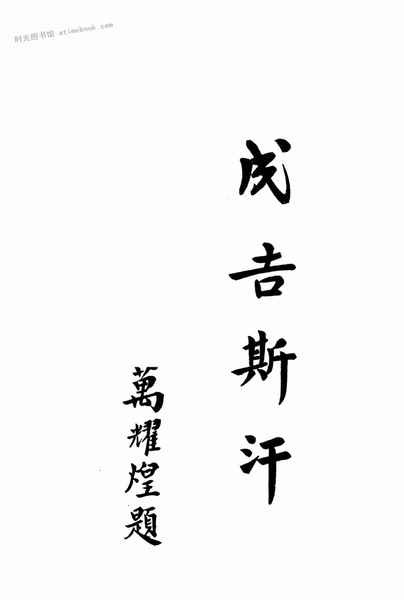 时光图书馆 atimebook.com
成吉斯汗
萬耀煌題